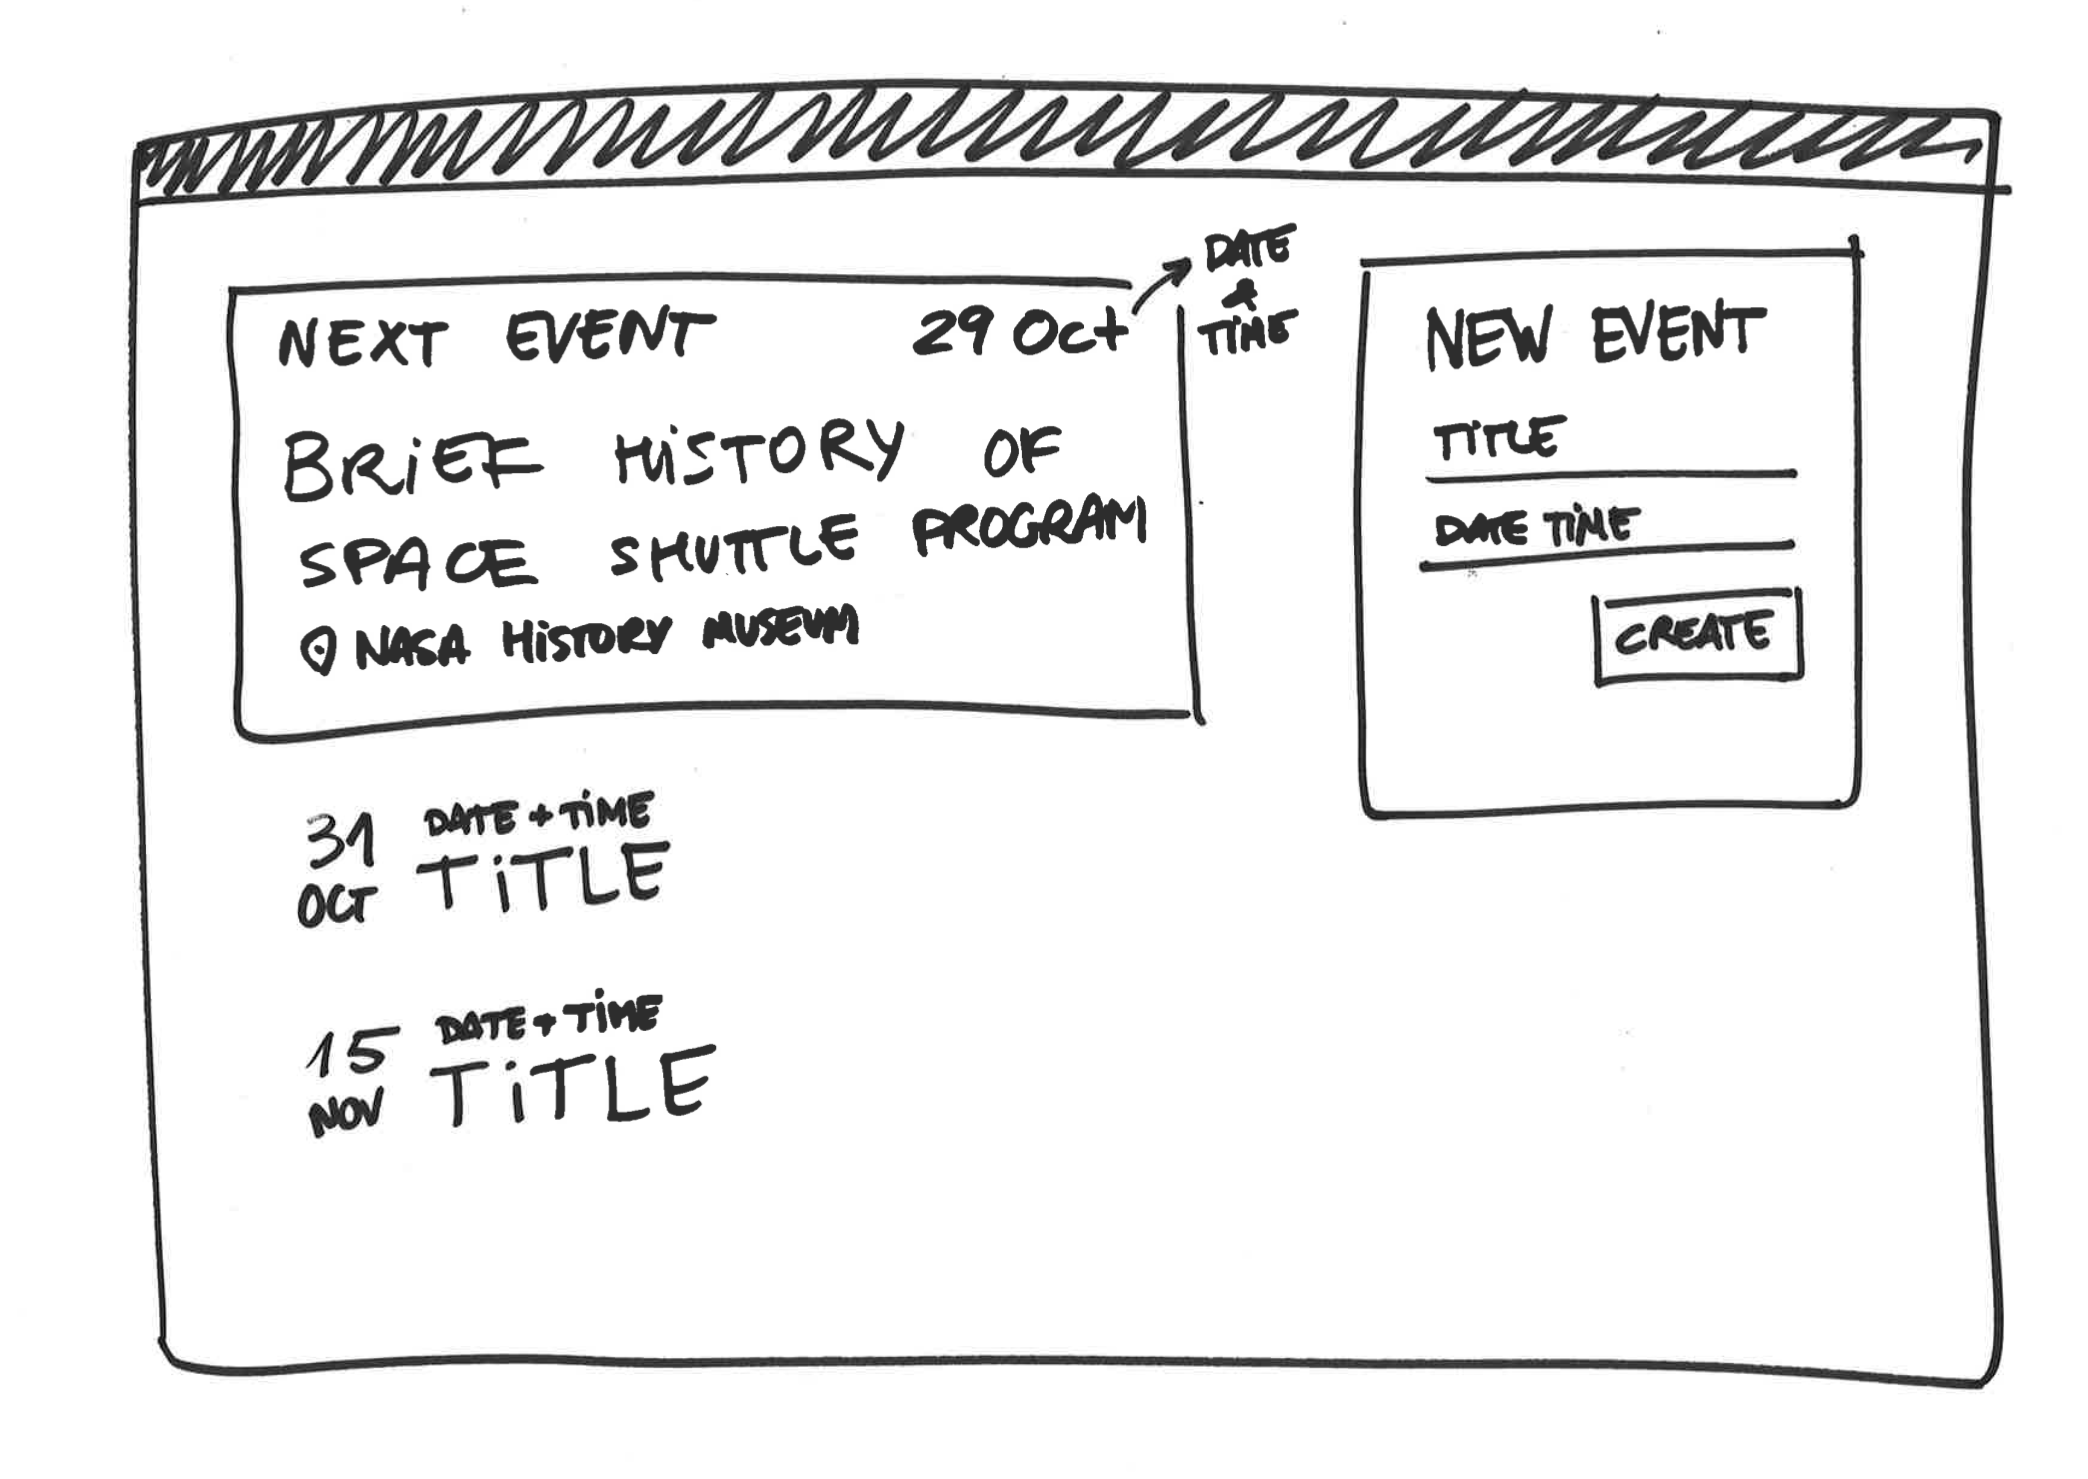 NEXT EVENT 29 Oct
DATE
&
TIME
BRIEF HISTORY OF
SPACE SHUTTLE PROGRAM
NASA HISTORY MUSEUM
NEW EVENT
TITLE
DATE TIME
CREATE
31
OCT
DATE + TIME
TITLE
15
NOV
DATE + TIME
TITLE